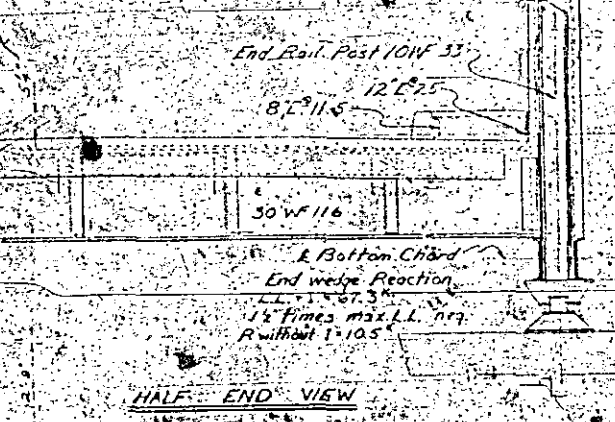 End Rail Post 10WF 33
12"[s 25
8"[s 11.5
30 WF 116
℄ Bottom Chord
End wedge Reaction
L.L. + I = 67.3 K
1½ times max L.L. neg.
R without I = 10.5 K
HALF END VIEW